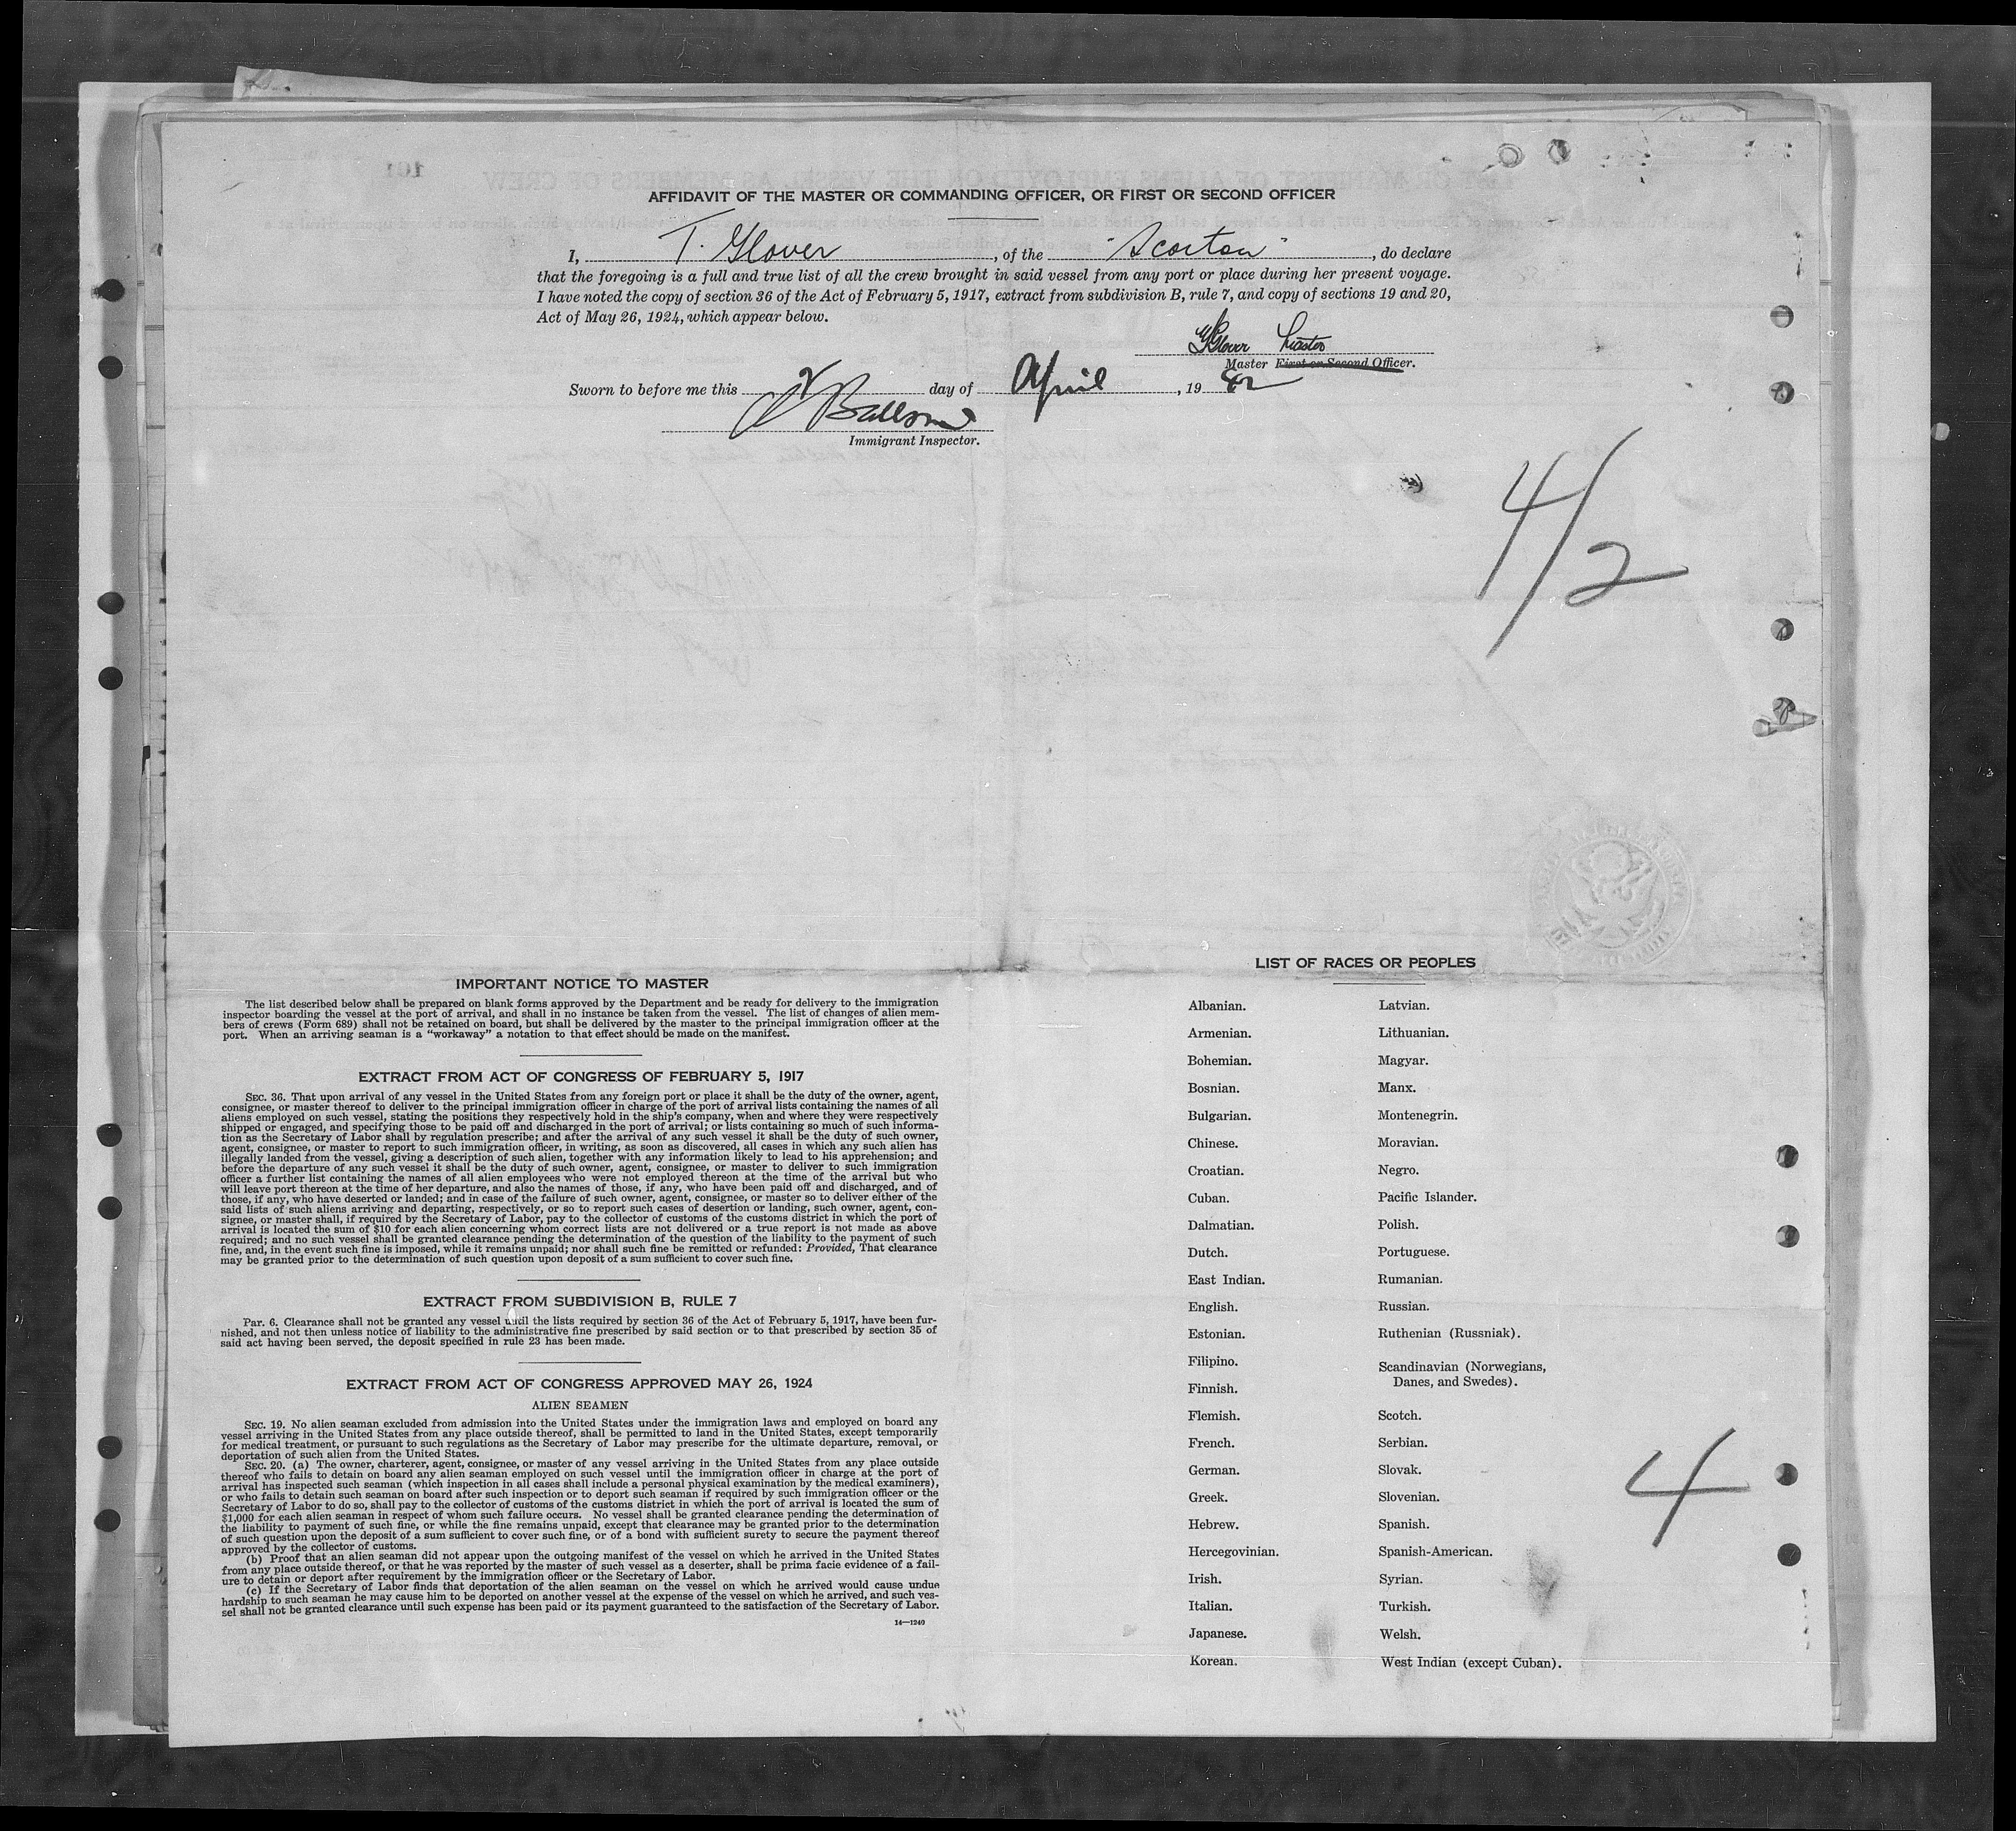 101
AFFIDAVIT OF THE MASTER OR COMMANDING OFFICER, OR FIRST OR SECOND OFFICER
I, T. Glover, of the "Scorton", do declare
that the foregoing is a full and true list of all the crew brought in said vessel from any port or place during her present voyage.
I have noted the copy of section 36 of the Act of February 5, 1917, extract from subdivision B, rule 7, and copy of sections 19 and 20,
Act of May 26, 1924, which appear below.
Glover Master
Master First or Second Officer.
Sworn to before me this 2 day of April, 19 42
Immigrant Inspector.
4/2
IMPORTANT NOTICE TO MASTER
The list described below shall be prepared on blank forms approved by the Department and be ready for delivery to the immigration
inspector boarding the vessel at the port of arrival, and shall in no instance be taken from the vessel. The list of changes of alien mem-
bers of crews (Form 689) shall not be retained on board, but shall be delivered by the master to the principal immigration officer at the
port. When an arriving seaman is a "workaway" a notation to that effect should be made on the manifest.
EXTRACT FROM ACT OF CONGRESS OF FEBRUARY 5, 1917
SEC. 36. That upon arrival of any vessel in the United States from any foreign port or place it shall be the duty of the owner, agent,
consignee, or master thereof to deliver to the principal immigration officer in charge of the port of arrival lists containing the names of all
aliens employed on such vessel, stating the positions they respectively hold in the ship's company, when and where they were respectively
shipped or engaged, and specifying those to be paid off and discharged in the port of arrival; or lists containing so much of such informa-
tion as the Secretary of Labor shall by regulation prescribe; and after the arrival of any such vessel it shall be the duty of such owner,
agent, consignee, or master to report to such immigration officer, in writing, as soon as discovered, all cases in which any such alien has
illegally landed from the vessel, giving a description of such alien, together with any information likely to lead to his apprehension; and
before the departure of any such vessel it shall be the duty of such owner, agent, consignee, or master to deliver to such immigration
officer a further list containing the names of all alien employees who were not employed thereon at the time of the arrival but who
will leave port thereon at the time of her departure, and also the names of those, if any, who have been paid off and discharged, and of
those, if any, who have deserted or landed; and in case of the failure of such owner, agent, consignee, or master so to deliver either of the
said lists of such aliens arriving and departing, respectively, or so to report such cases of desertion or landing, such owner, agent, con-
signee, or master shall, if required by the Secretary of Labor, pay to the collector of customs of the customs district in which the port of
arrival is located the sum of $10 for each alien concerning whom correct lists are not delivered or a true report is not made as above
required; and no such vessel shall be granted clearance pending the determination of the question of the liability to the payment of such
fine, and, in the event such fine is imposed, while it remains unpaid; nor shall such fine be remitted or refunded: Provided, That clearance
may be granted prior to the determination of such question upon deposit of a sum sufficient to cover such fine.
EXTRACT FROM SUBDIVISION B, RULE 7
Par. 6. Clearance shall not be granted any vessel until the lists required by section 36 of the Act of February 5, 1917, have been fur-
nished, and not then unless notice of liability to the administrative fine prescribed by said section or to that prescribed by section 35 of
said act having been served, the deposit specified in rule 23 has been made.
EXTRACT FROM ACT OF CONGRESS APPROVED MAY 26, 1924
ALIEN SEAMEN
SEC. 19. No alien seaman excluded from admission into the United States under the immigration laws and employed on board any
vessel arriving in the United States from any place outside thereof, shall be permitted to land in the United States, except temporarily
for medical treatment, or pursuant to such regulations as the Secretary of Labor may prescribe for the ultimate departure, removal, or
deportation of such alien from the United States.
SEC. 20. (a) The owner, charterer, agent, consignee, or master of any vessel arriving in the United States from any place outside
thereof who fails to detain on board any alien seaman employed on such vessel until the immigration officer in charge at the port of
arrival has inspected such seaman (which inspection in all cases shall include a personal physical examination by the medical examiners),
or who fails to detain such seaman on board after such inspection or to deport such seaman if required by such immigration officer or the
Secretary of Labor to do so, shall pay to the collector of customs of the customs district in which the port of arrival is located the sum of
$1,000 for each alien seaman in respect of whom such failure occurs. No vessel shall be granted clearance pending the determination of
the liability to payment of such fine, or while the fine remains unpaid, except that clearance may be granted prior to the determination
of such question upon the deposit of a sum sufficient to cover such fine, or of a bond with sufficient surety to secure the payment thereof
approved by the collector of customs.
(b) Proof that an alien seaman did not appear upon the outgoing manifest of the vessel on which he arrived in the United States
from any place outside thereof, or that he was reported by the master of such vessel as a deserter, shall be prima facie evidence of a fail-
ure to detain or deport after requirement by the immigration officer or the Secretary of Labor.
(c) If the Secretary of Labor finds that deportation of the alien seaman on the vessel on which he arrived would cause undue
hardship to such seaman he may cause him to be deported on another vessel at the expense of the vessel on which he arrived, and such ves-
sel shall not be granted clearance until such expense has been paid or its payment guaranteed to the satisfaction of the Secretary of Labor.
14—1240
LIST OF RACES OR PEOPLES
Albanian.
Armenian.
Bohemian.
Bosnian.
Bulgarian.
Chinese.
Croatian.
Cuban.
Dalmatian.
Dutch.
East Indian.
English.
Estonian.
Filipino.
Finnish.
Flemish.
French.
German.
Greek.
Hebrew.
Hercegovinian.
Irish.
Italian.
Japanese.
Korean.
Latvian.
Lithuanian.
Magyar.
Manx.
Montenegrin.
Moravian.
Negro.
Pacific Islander.
Polish.
Portuguese.
Rumanian.
Russian.
Ruthenian (Russniak).
Scandinavian (Norwegians,
Danes, and Swedes).
Scotch.
Serbian.
Slovak.
Slovenian.
Spanish.
Spanish-American.
Syrian.
Turkish.
Welsh.
West Indian (except Cuban).
4